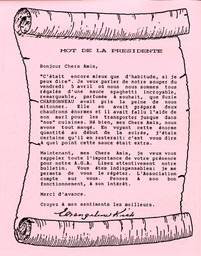 MOT DE LA PRESIDENTE
Bonjour Chers Amis,
"C'était encore mieux que d'habitude, si je
peux dire". Je veux parler de notre souper du
vendredi 5 avril où nous nous sommes tous
régalés d'une sauce spaghetti incroyable,
remarquable, parfumée à souhait, que Suzie
CHARBONNEAU avait pris la peine de nous
mitonner. Elle en avait préparé deux
chaudrons énormes et il avait fallu l'aide de
son mari pour les transporter jusque dans
"nos" cuisines. Hé bien, mes Chers Amis, nous
avons tout mangé. En voyant cette énorme
quantité au début de la soirée, j'étais
certaine qu'il en resterait: c'est vous dire
à quel point cette sauce était extra.
Maintenant, mes Chers Amis, je veux vous
rappeler toute l'importance de votre présence
pour notre A.G.A. Lisez attentivement notre
bulletin. Vous êtes indispensables: je me
permets de vous le répéter. L'Association
compte sur vous. Pensez à son bon
fonctionnement, à son intérêt.
Merci d'avance.
Croyez à mes sentiments les meilleurs.